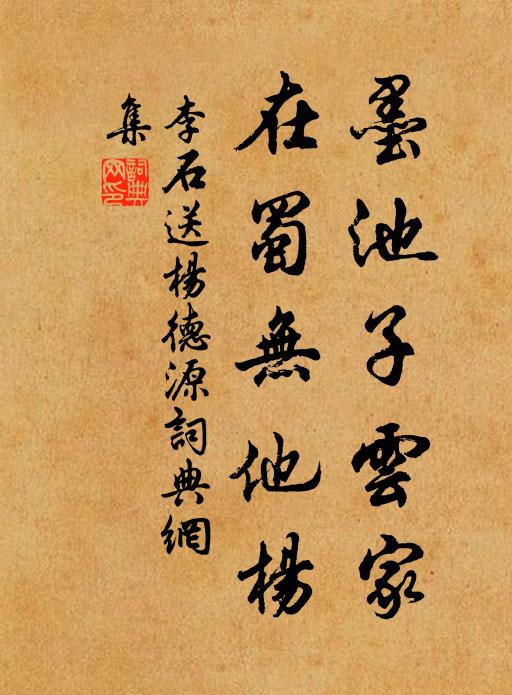 墨池子雲家
在蜀無他楊
李石送楊德源詞典網
集
詞典
网印